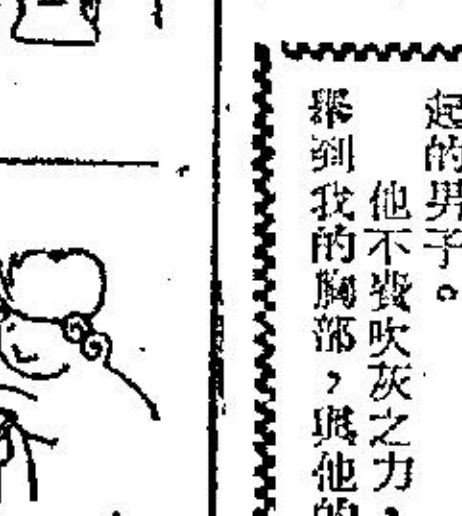 起的男子。
他不費吹灰之力，
舉到我的胸部，與他的